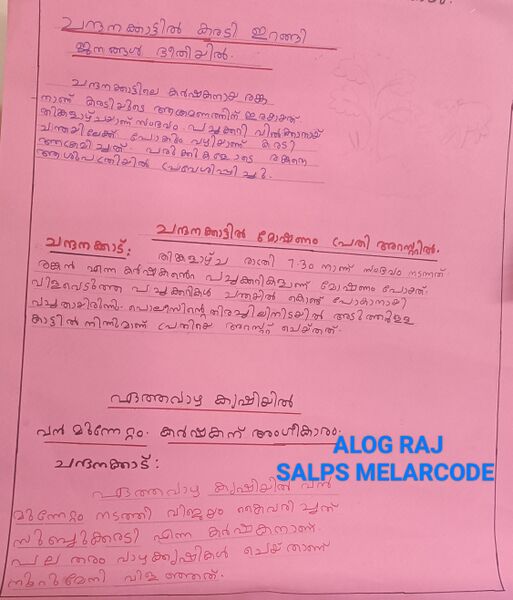 ചന്ദനക്കാട്ടിൽ കരടി ഇറങ്ങി
ജനങ്ങൾ ഭീതിയിൽ.
ചന്ദനക്കാട്ടിലെ കർഷകനായ രങ്ക
നാണ് കരടിയുടെ ആക്രമണത്തിന് ഇരയായത്.
തിങ്കളാഴ്ചയാണ് സംഭവം. പച്ചക്കറി വിൽക്കാനായ്
ചന്തയിലേക്ക് പോകും വഴിയാണ് കരടി
ആക്രമിച്ചത്. പരുക്കുകളോടെ രങ്കനെ
ആശുപത്രിയിൽ പ്രവേശിപ്പിച്ചു.
ചന്ദനക്കാട്ടിൽ മോഷണം പ്രതി അറസ്റ്റിൽ.
ചന്ദനക്കാട്: തിങ്കളാഴ്ച രാത്രി 7.30 നാണ് സംഭവം നടന്നത്.
രങ്കൻ എന്ന കർഷകൻ്റെ പച്ചക്കറികളാണ് മോഷണം പോയത്.
വിളവെടുത്ത പച്ചക്കറികൾ ചന്തയിൽ കൊണ്ട് പോകാനായി
വച്ചതായിരുന്നു. പൊലീസിൻ്റെ തിരച്ചിലിനിടയിൽ അടുത്തുള്ള
കാട്ടിൽ നിന്നുമാണ് പ്രതിയെ അറസ്റ്റ് ചെയ്തത്.
ഏത്തവാഴ കൃഷിയിൽ
വൻ മുന്നേറ്റം. കർഷകന് അംഗീകാരം.
ചന്ദനക്കാട്:
ഏത്തവാഴ കൃഷിയിൽ വൻ
മുന്നേറ്റം നടത്തി വിജയം കൈവരിച്ചത്
സുബ്ബുക്കരടി എന്ന കർഷകനാണ്.
പല തരം വാഴക്കൃഷികൾ ചെയ്താണ്
നൂറുമേനി വിളഞ്ഞത്.
ALOG RAJ
SALPS MELARCODE